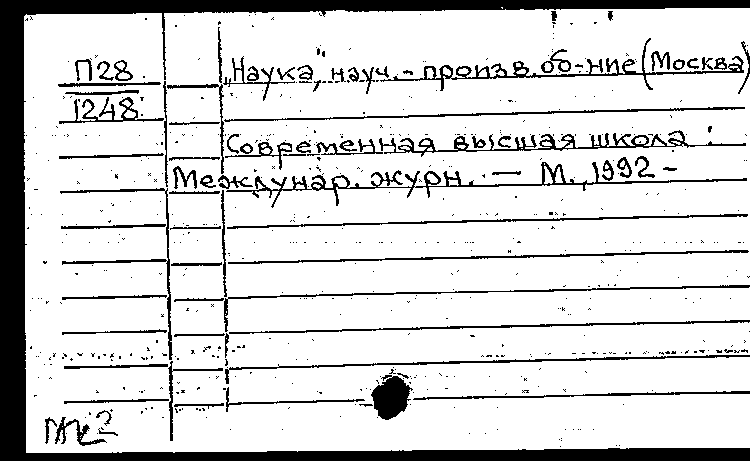 П28
1248
„Наука", науч.-произв. об-ние (Москва)
Современная высшая школа:
Междунар. журн. — М., 1992 -